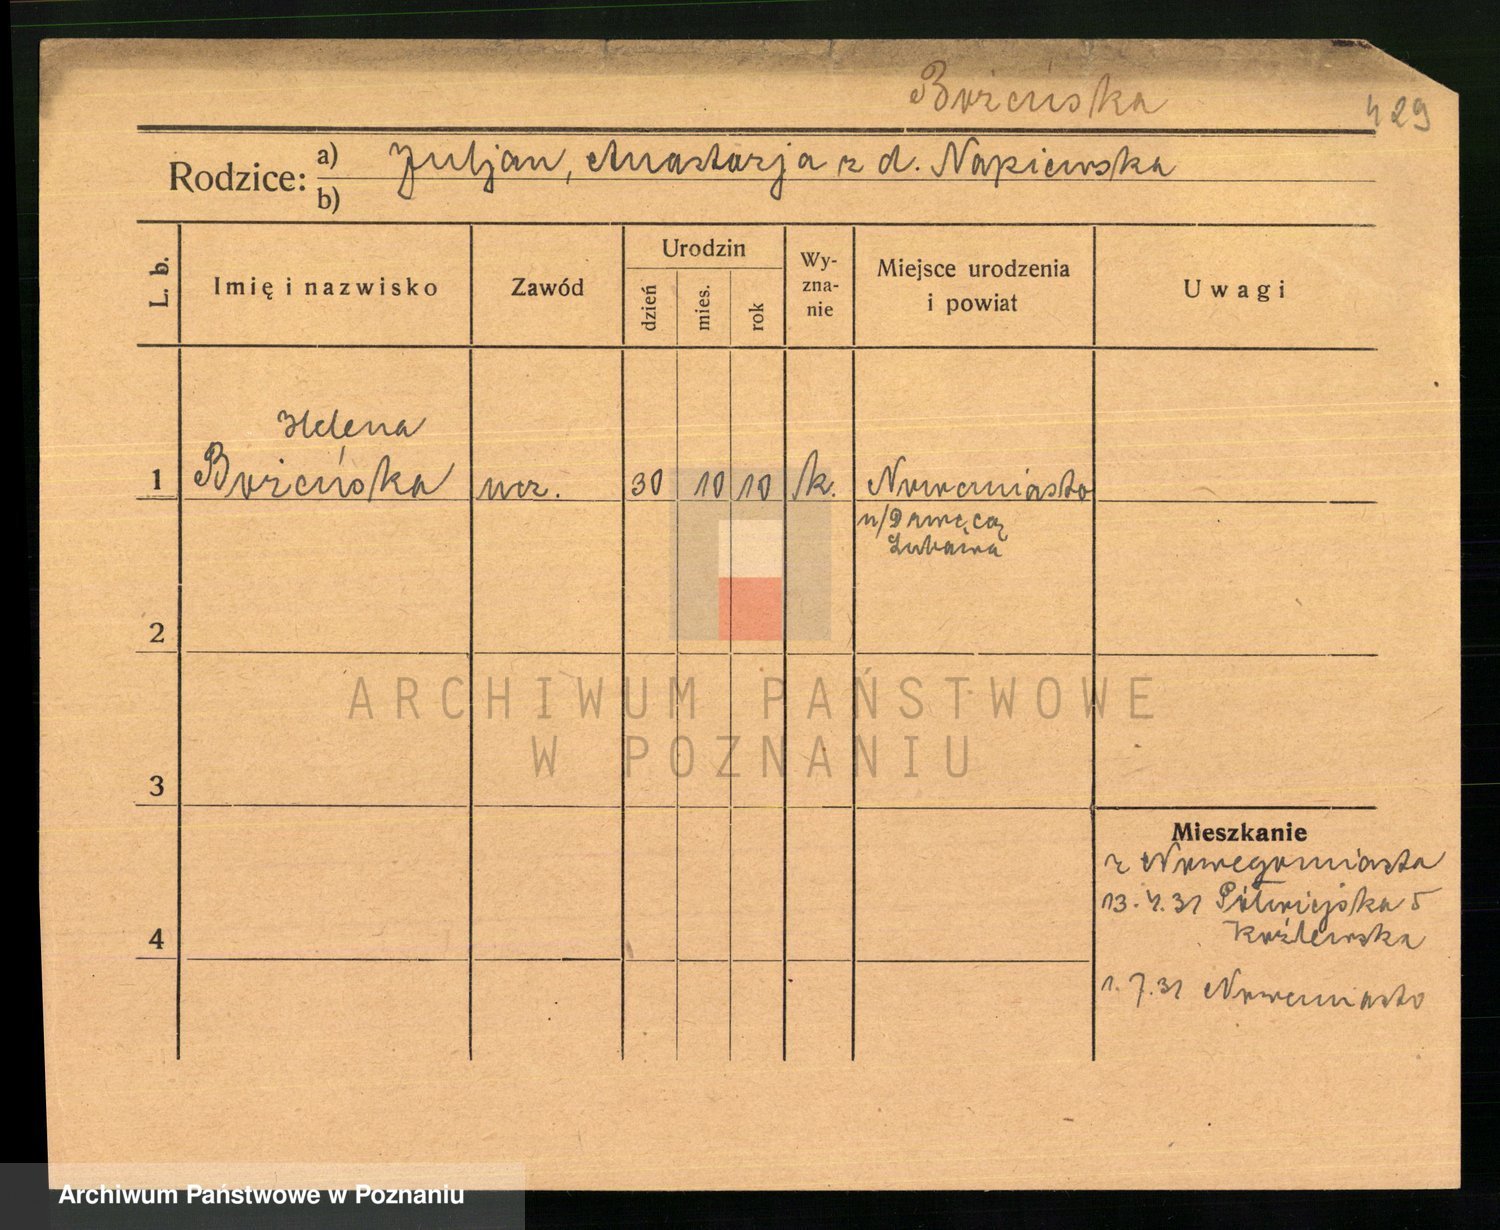 Bożeńska
429
Rodzice: a) Juljan, Anastazja z d. Napiewska
b)
L. b.
Imię i nazwisko
Zawód
Urodzin
dzień
mies.
rok
Wy-
zna-
nie
Miejsce urodzenia
i powiat
Uwagi
Helena
1 Bożeńska ucz. 30 10 10 k. Nowemiasto
n/Drwęcą
Lubawa
2
3
4
Mieszkanie
z Nowegomiasta
13.4.31 Półwiejska 5
Koźlewska
1.7.31 Nowemiasto
ARCHIWUM PAŃSTWOWE
W POZNANIU
Archiwum Państwowe w Poznaniu